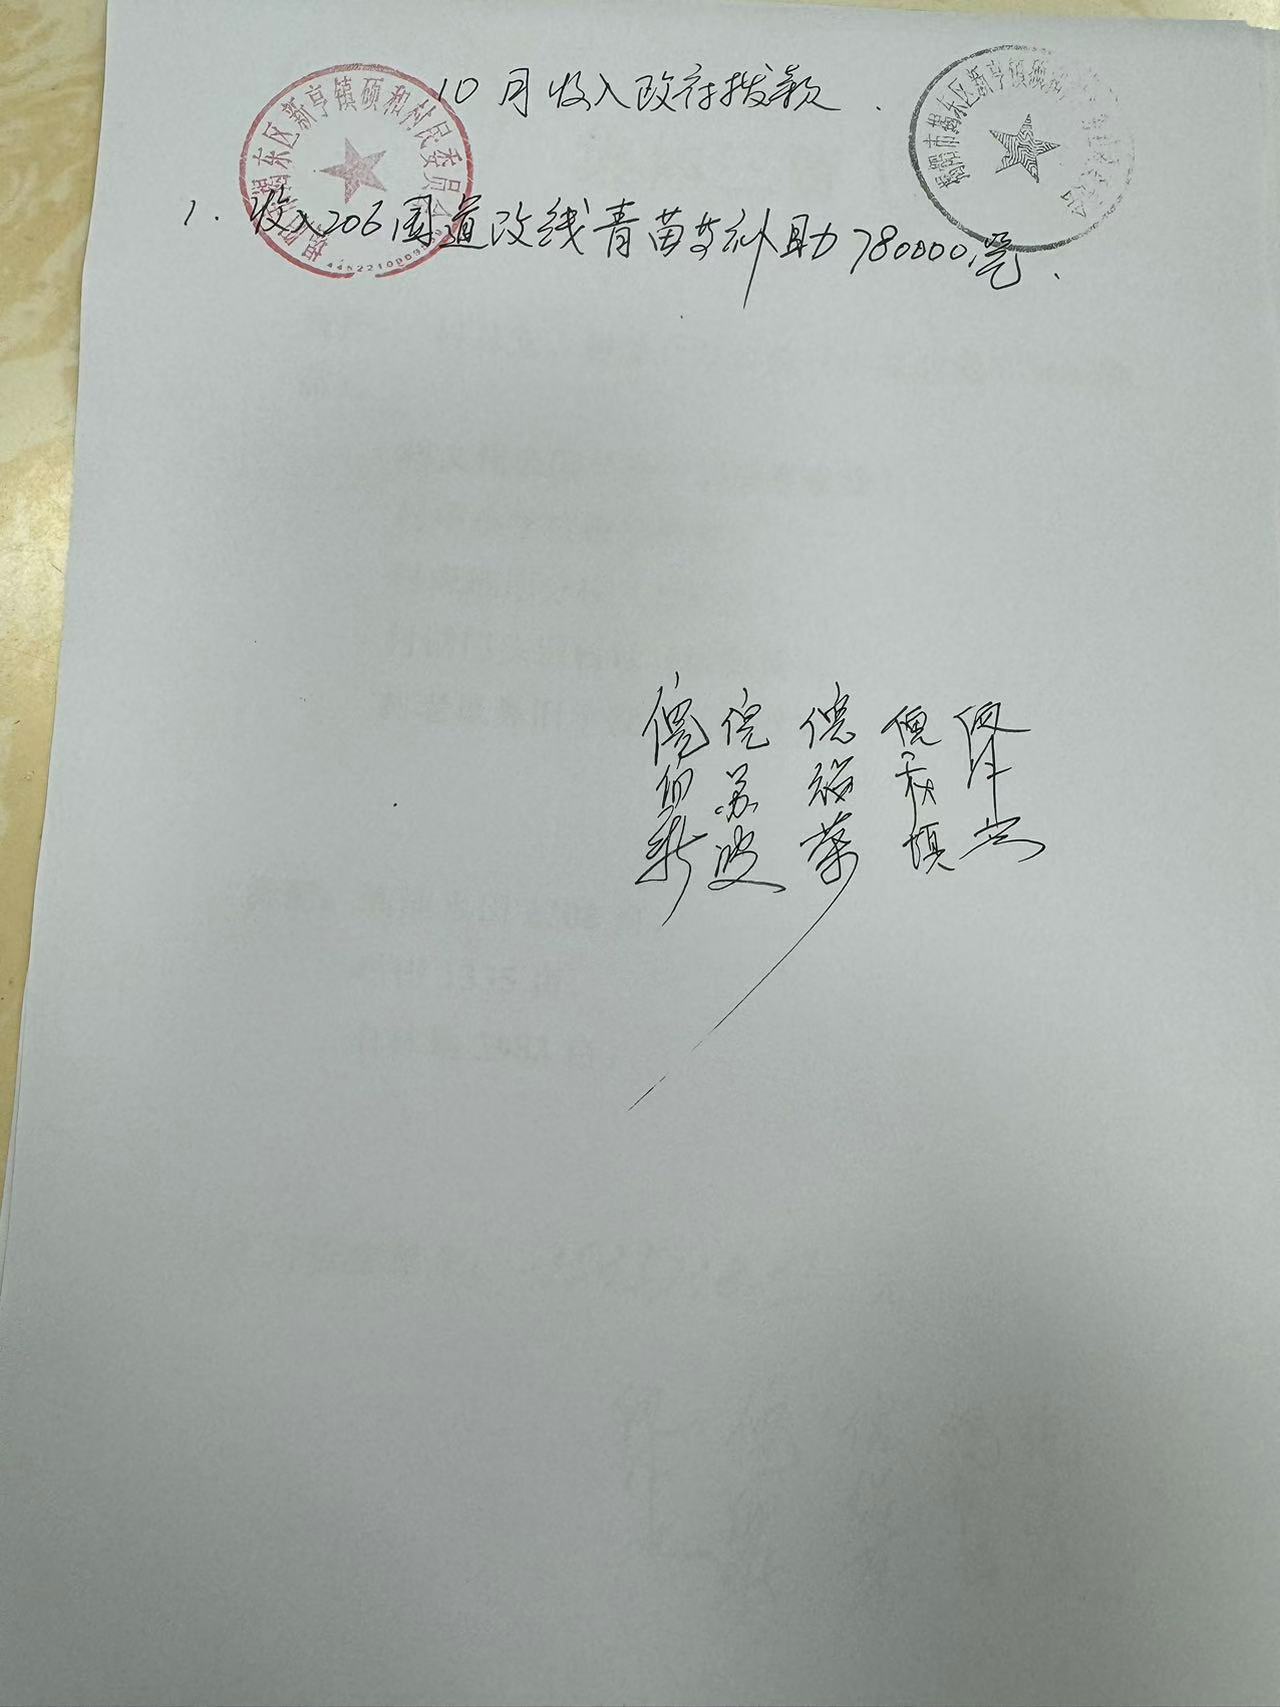 10月收入政府拨款.
揭阳市揭东区新亨镇硕和村民委员会
揭阳市揭东区新亨镇硕和
1. 收入206国道改线青苗等补助780000元.
倪 倪 倪 倪 倪
苏 绍 秋
新 波 荣 填